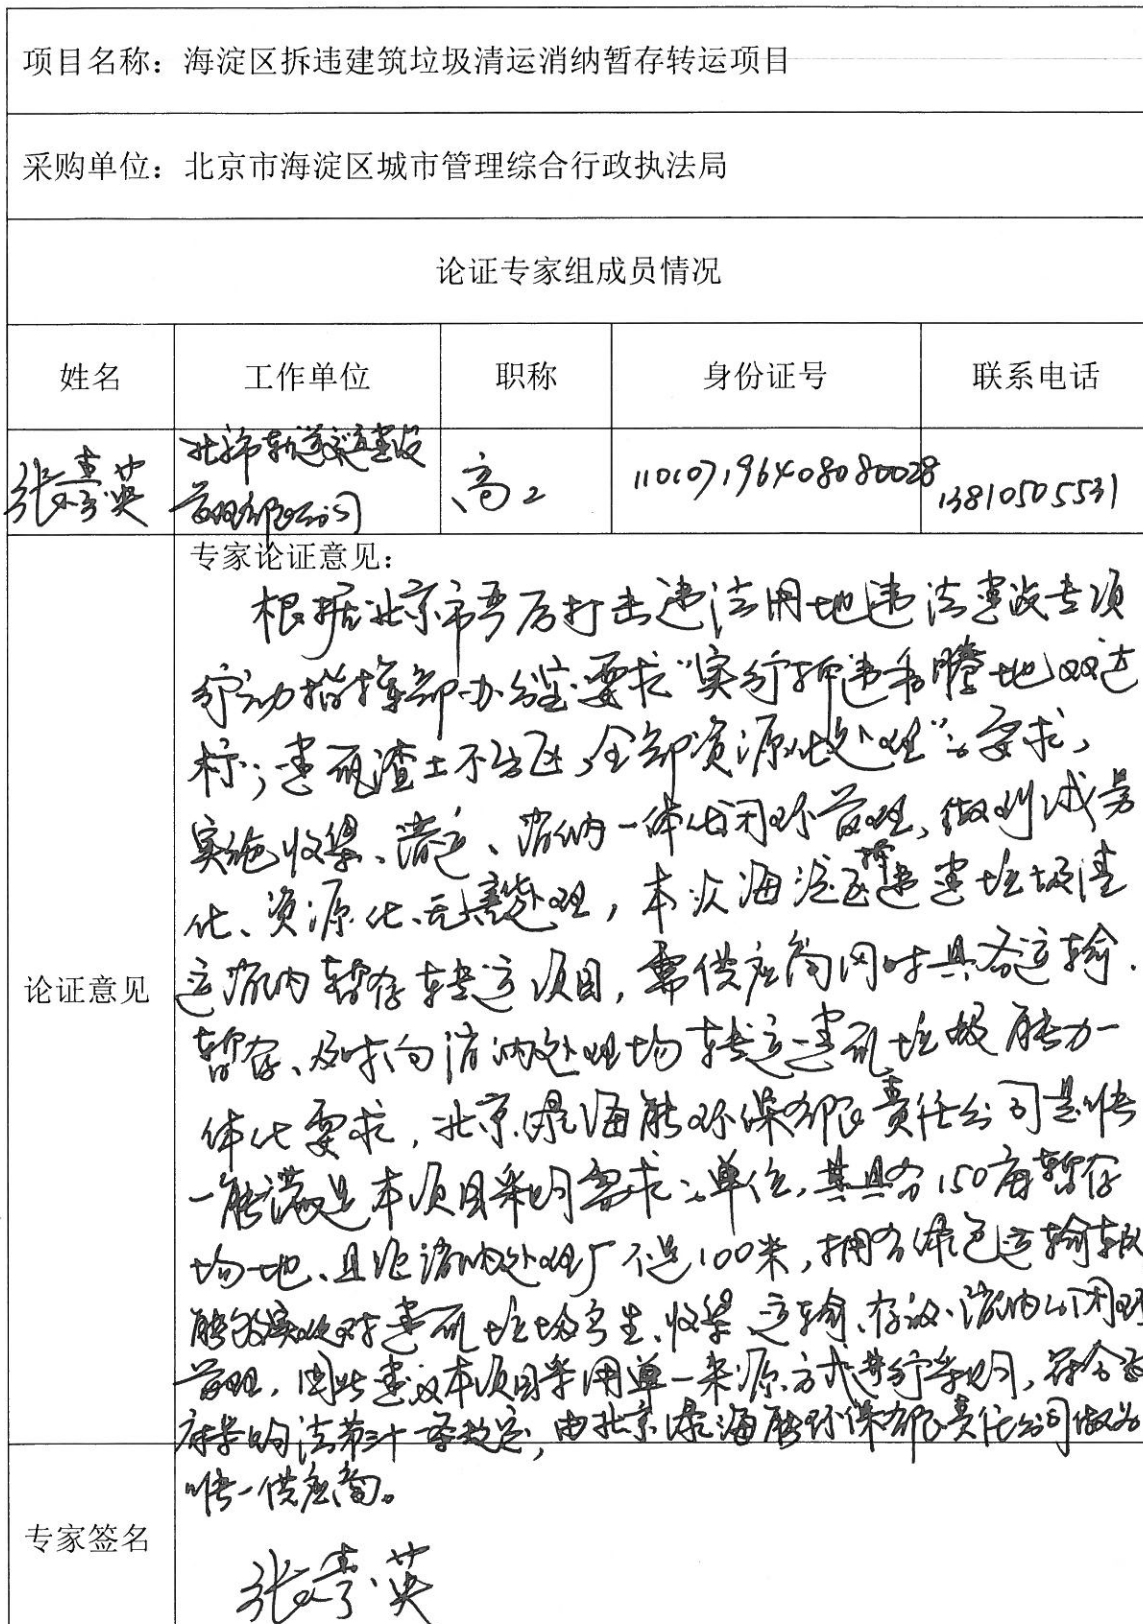 项目名称：海淀区拆违建筑垃圾清运消纳暂存转运项目
采购单位：北京市海淀区城市管理综合行政执法局
论证专家组成员情况
姓名 工作单位 职称 身份证号 联系电话
北京市轨道交通建设
管理有限公司
张 英 高工 110107196408080028 13810505531
专家论证意见：
根据北京市严厉打击违法用地违法建设专项
行动指挥部办公室要求“实行拆违和腾地双达
标；建筑渣土不出区，全部资源化处理”的要求，
实施收集、清运、消纳一体化闭环管理，做到减量
化、资源化、无害处理，本次海淀区拆违建垃圾清
运消纳暂存转运项目，需供应商同时具备运输、
暂存、及时向消纳处理场转运建筑垃圾能力一
体化要求，北京 海能环保有限责任公司是唯
一能满足本项目采购需求的单位，其具有150亩暂存
场地、且距消纳处理厂不足100米，拥有绿色运输车队
能够实现对建筑垃圾产生、收集、运输、存放、消纳的闭环
管理，因此建议本项目采用单一来源方式进行采购，符合政
府采购法第三十一条规定，由北京 海能环保有限责任公司做为
唯一供应商。
论证意见
专家签名
张 英